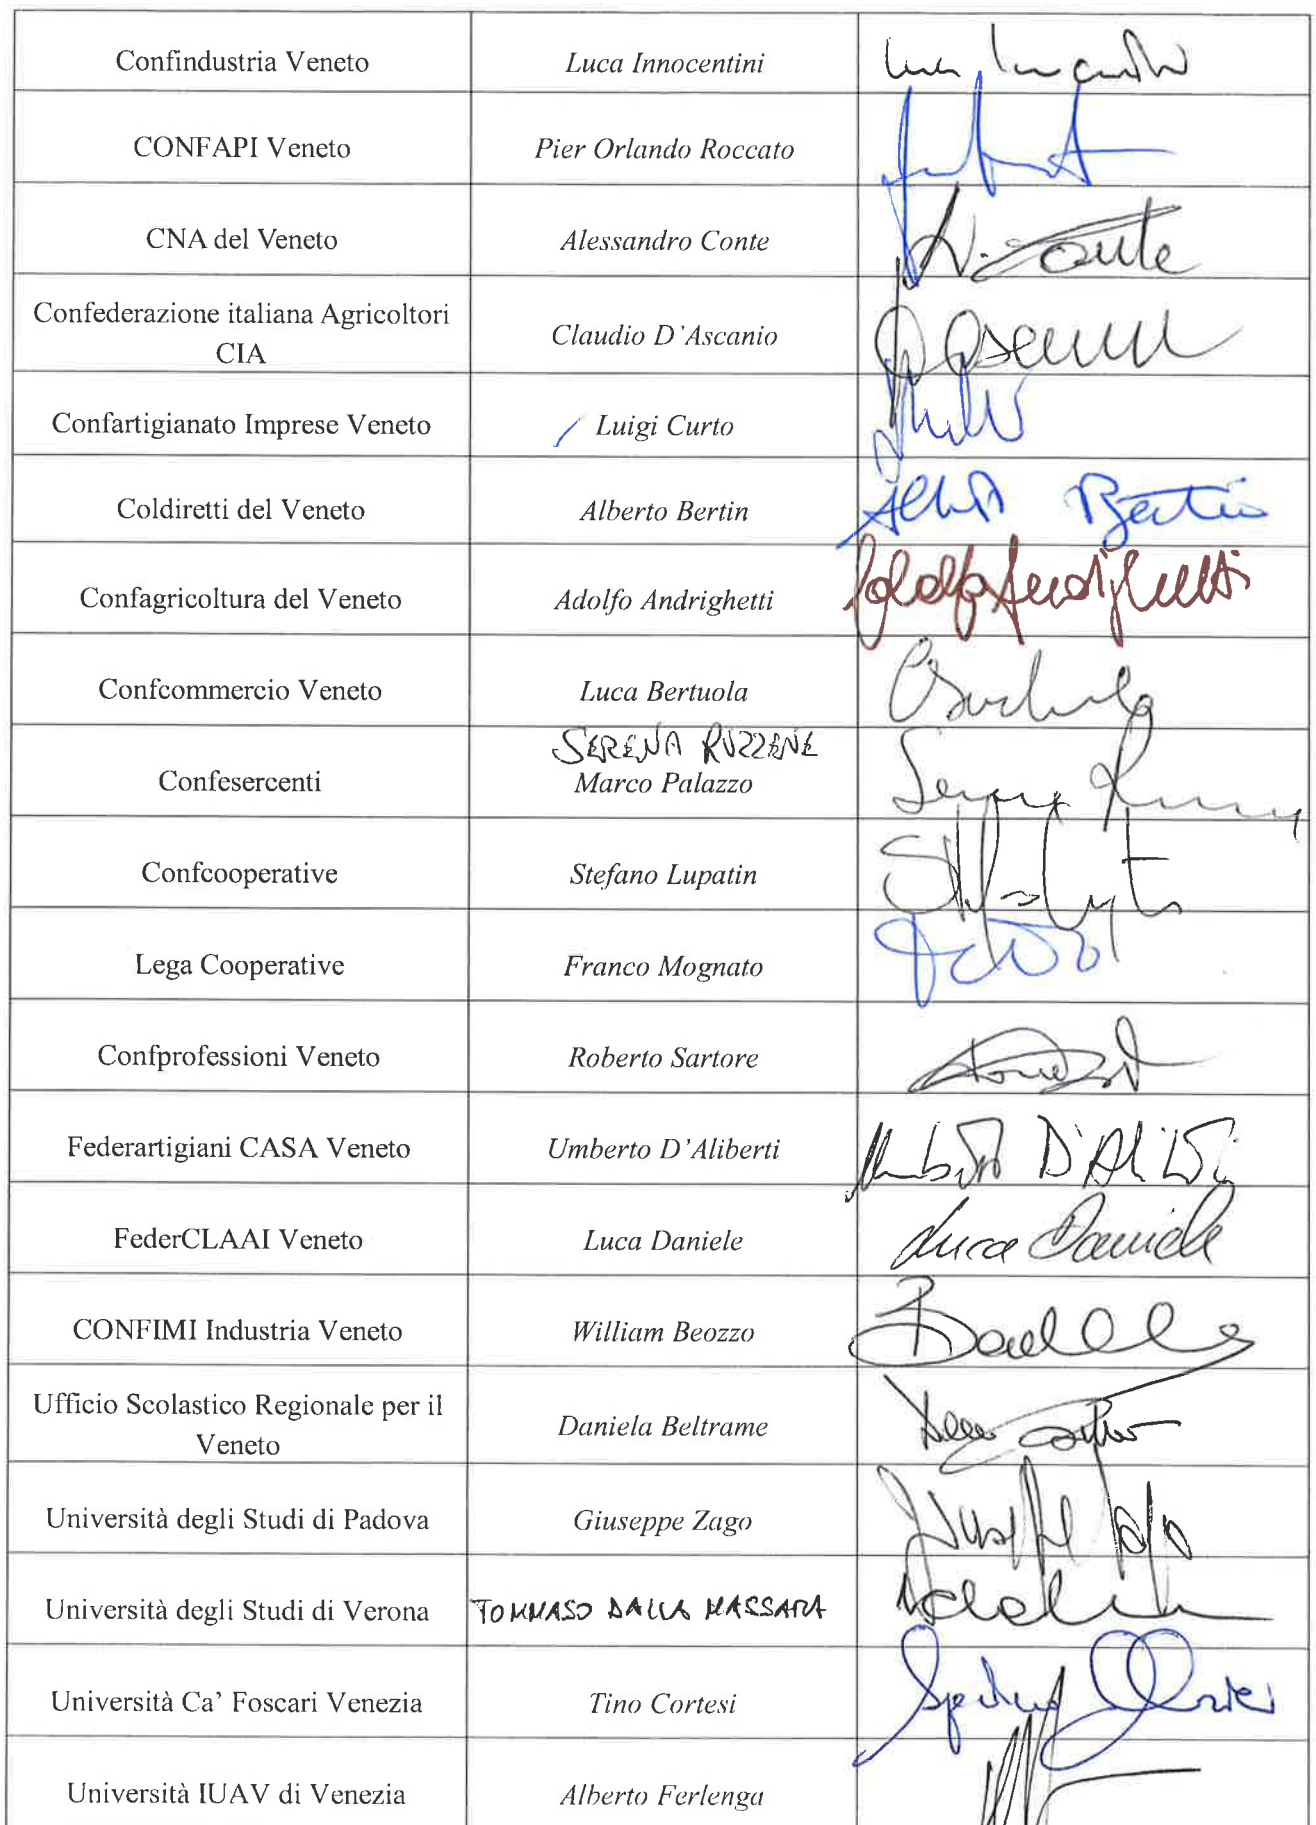 Confindustria Veneto Luca Innocentini
CONFAPI Veneto Pier Orlando Roccato
CNA del Veneto Alessandro Conte A. Conte
Confederazione italiana Agricoltori
CIA Claudio D'Ascanio
Confartigianato Imprese Veneto Luigi Curto
Coldiretti del Veneto Alberto Bertin Bertin
Confagricoltura del Veneto Adolfo Andrighetti Adolfo Andrighetti
Confcommercio Veneto Luca Bertuola
SERENA RUZZENE
Confesercenti Marco Palazzo
Confcooperative Stefano Lupatin
Lega Cooperative Franco Mognato
Confprofessioni Veneto Roberto Sartore
Federartigiani CASA Veneto Umberto D'Aliberti Umberto D'Aliberti
FederCLAAI Veneto Luca Daniele Luca Daniele
CONFIMI Industria Veneto William Beozzo
Ufficio Scolastico Regionale per il
Veneto Daniela Beltrame
Università degli Studi di Padova Giuseppe Zago Giuseppe Zago
Università degli Studi di Verona TOMMASO DALLA MASSARA
Università Ca' Foscari Venezia Tino Cortesi
Università IUAV di Venezia Alberto Ferlenga